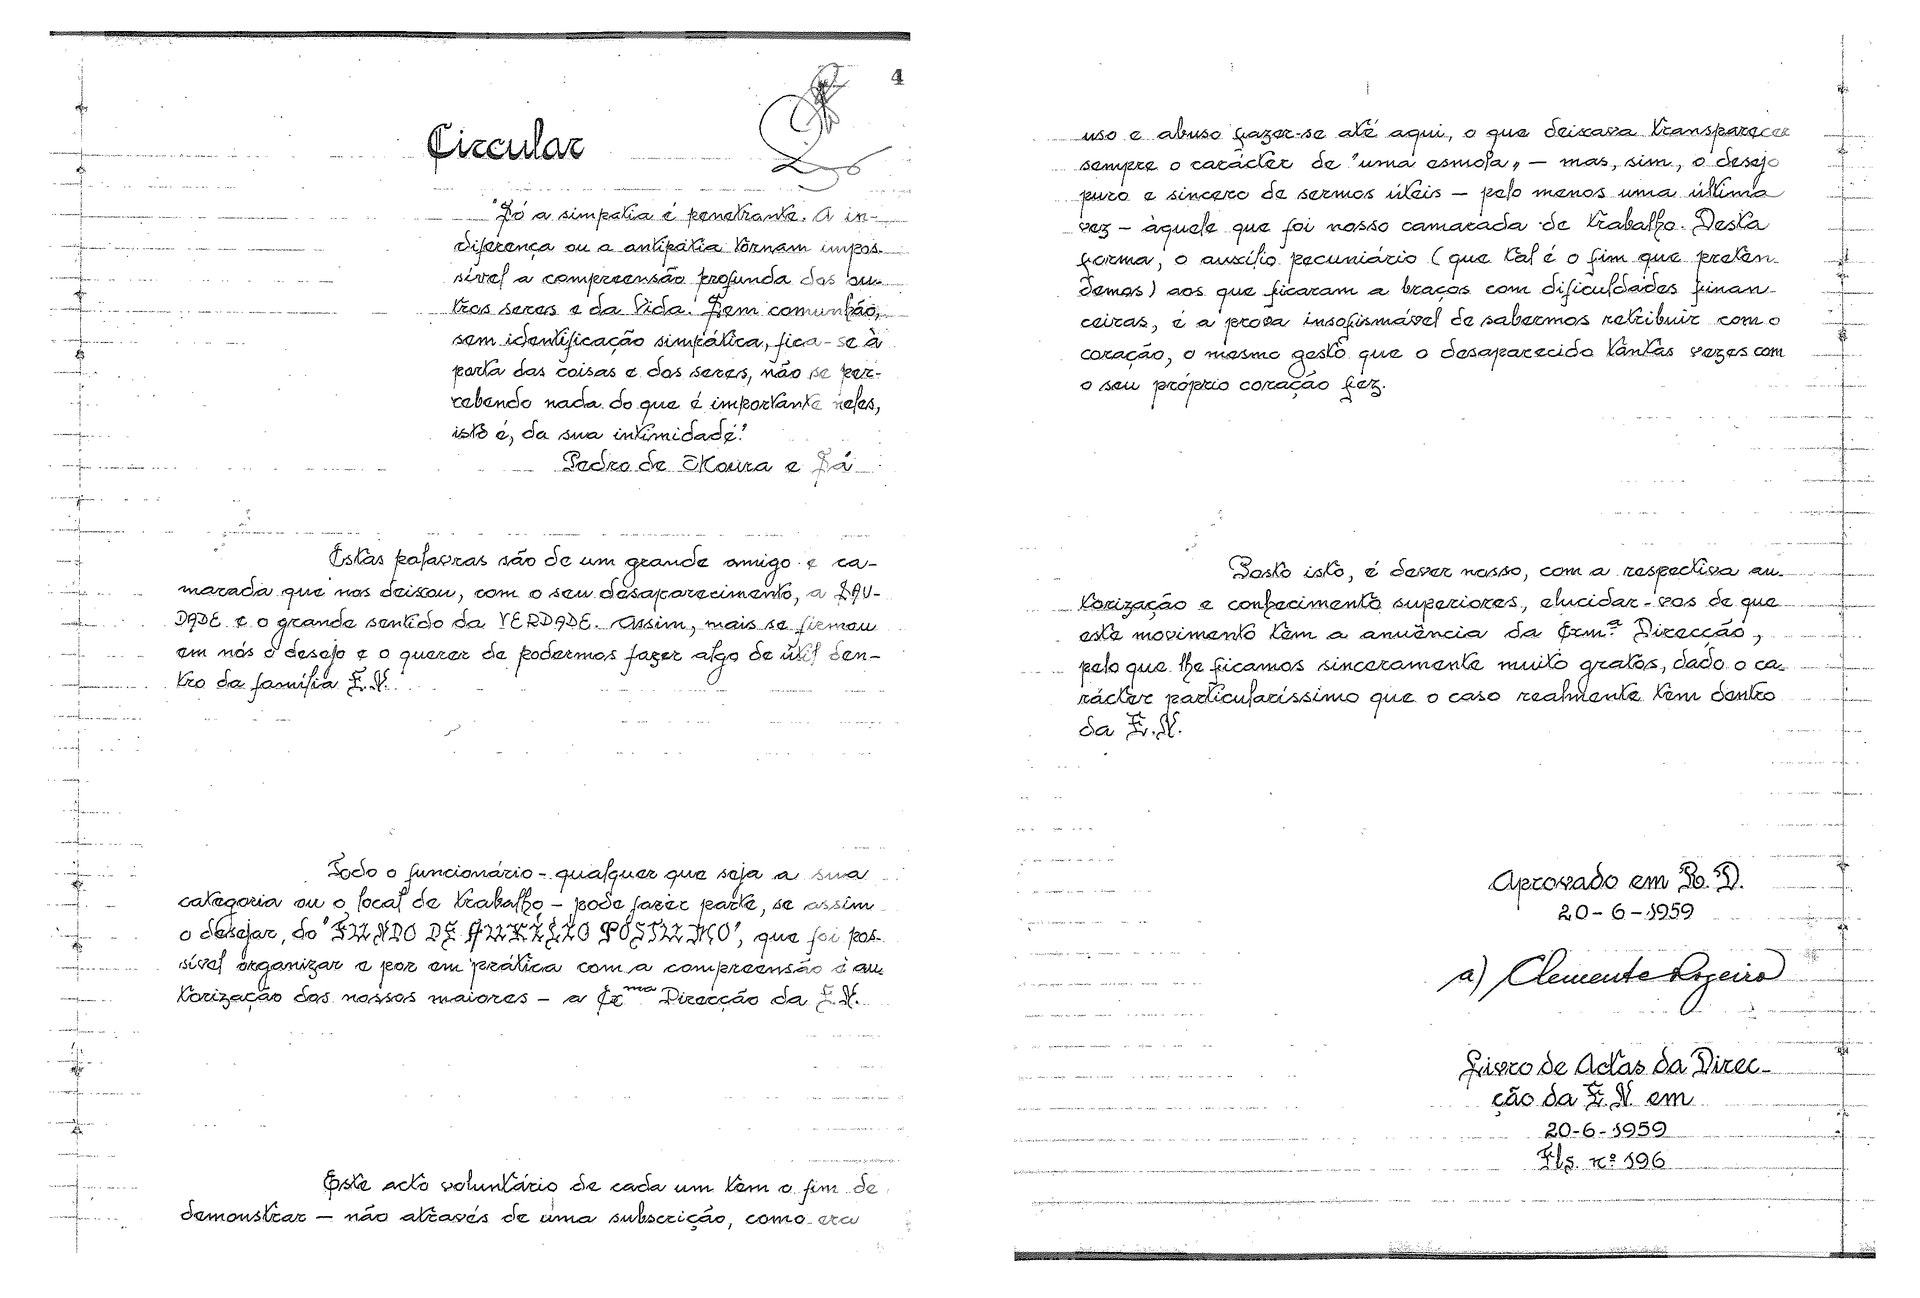 4
Circular
"Só a simpatia é penetrante. A in-
diferença ou a antipatia tornam impos-
sível a compreensão profunda dos ou-
tros seres e da Vida! Sem comunhão,
sem identificação simpática, fica-se à
porta das coisas e dos seres, não se per-
cebendo nada do que é importante neles,
isto é, da sua intimidade."
Pedro de Moura e Sá
Estas palavras são de um grande amigo e ca-
marada que nos deixou, com o seu desaparecimento, a SAU-
DADE e o grande sentido da VERDADE. Assim, mais se firmou
em nós o desejo e o querer de podermos fazer algo de útil den-
tro da família E.N.
Todo o funcionário - qualquer que seja a sua
categoria ou o local de trabalho - pode fazer parte, se assim
o desejar, do "FUNDO DE AUXÍLIO PÓSTUMO", que foi pos-
sível organizar e por em prática com a compreensão e au-
torização dos nossos maiores - a Exma Direcção da E.N.
Este acto voluntário de cada um tem o fim de
demonstrar - não através de uma subscrição, como era
uso e abuso fazer-se até aqui, o que deixava transparecer
sempre o carácter de "uma esmola" - mas, sim, o desejo
puro e sincero de sermos úteis - pelo menos uma última
vez - àquele que foi nosso camarada de trabalho. Desta
forma, o auxílio pecuniário (que tal é o fim que preten-
demos) aos que ficaram a braços com dificuldades finan-
ceiras, é a prova insofismável de sabermos retribuir com o
coração, o mesmo gesto que o desaparecido tantas vezes com
o seu próprio coração fez.
Posto isto, é dever nosso, com a respectiva au-
torização e conhecimento superiores, elucidar-vos de que
este movimento tem a anuência da Exm.ª Direcção,
pelo que lhe ficamos sinceramente muito gratos, dado o ca-
rácter particularíssimo que o caso realmente tem dentro
da E.N.
Aprovado em R.D.
20-6-1959
a) Clemente Rogeiro
Livro de Actas da Direc-
ção da E.N. em
20-6-1959
Fls. nº 196